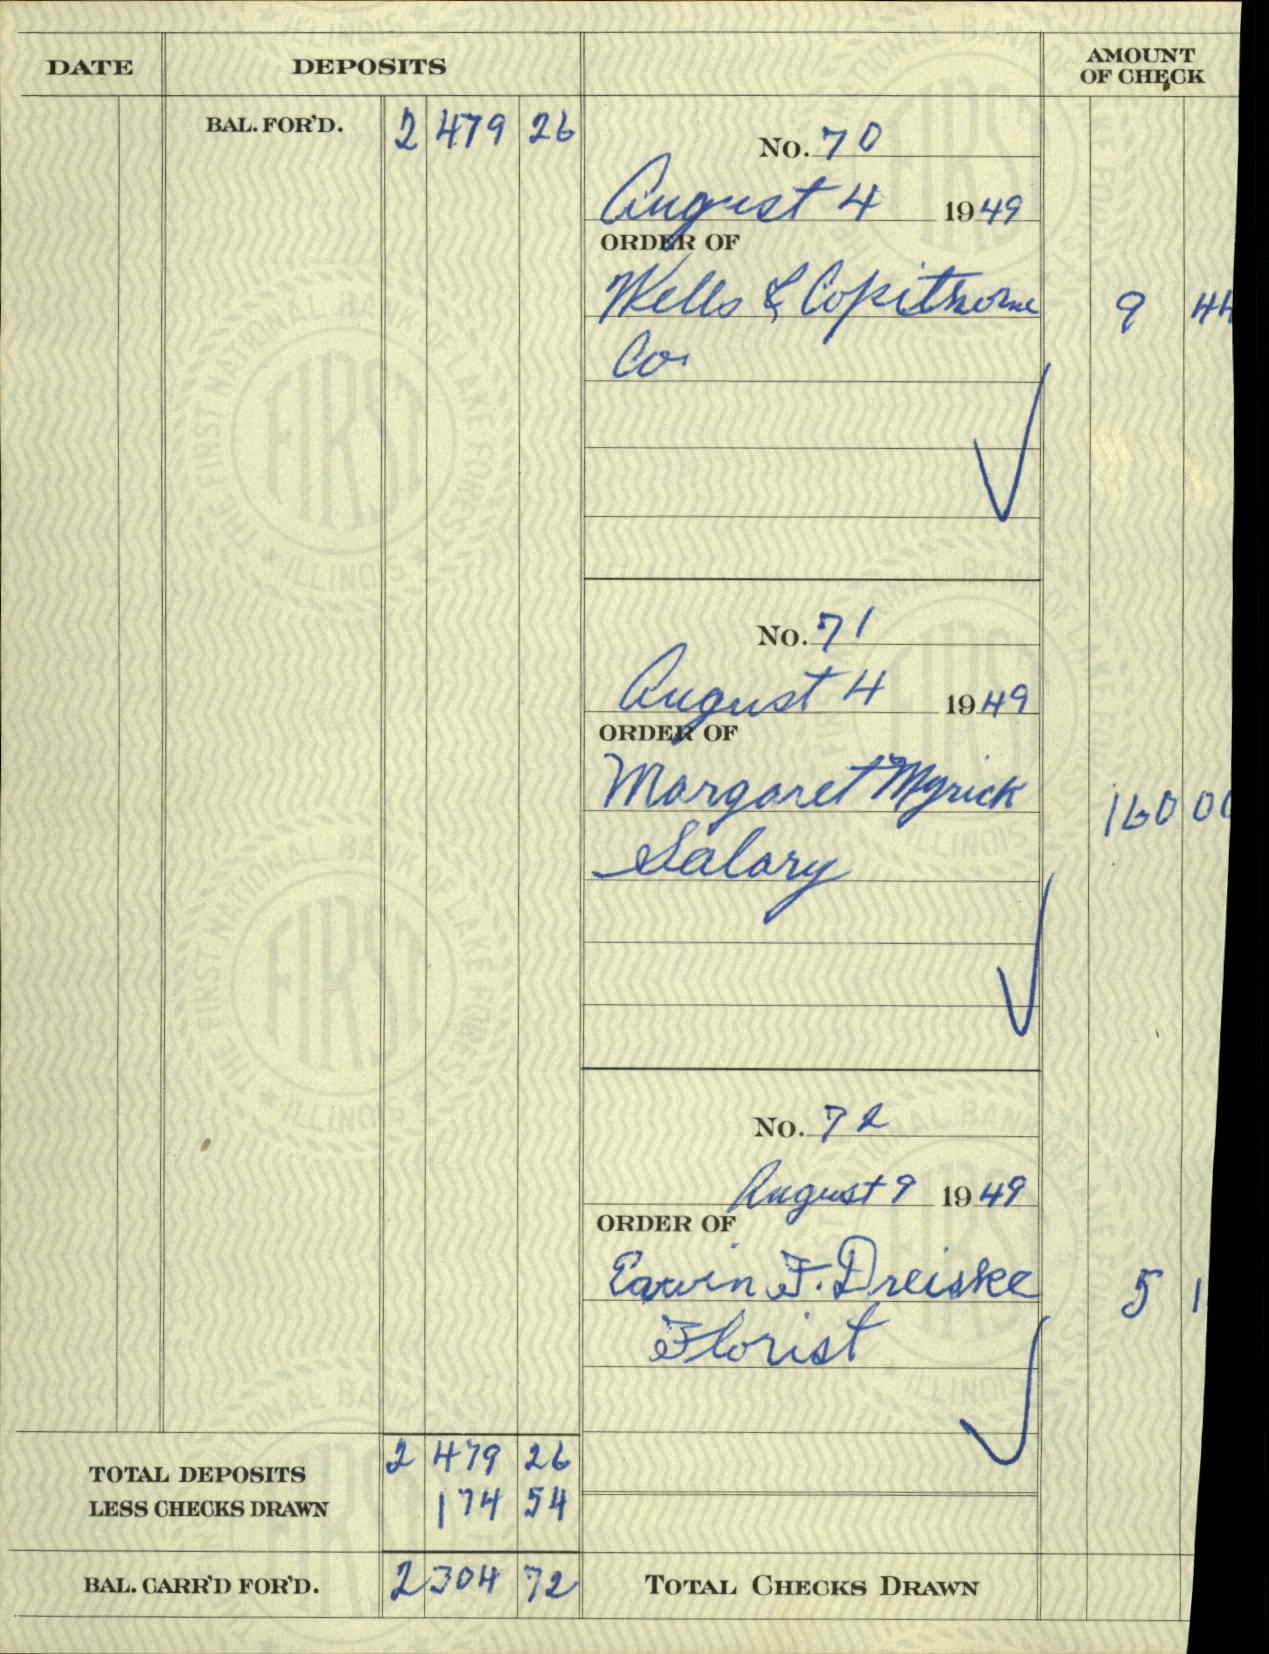 DATE DEPOSITS AMOUNT OF CHECK
BAL. FOR'D. 2 479 26
No. 70
August 4 1949
ORDER OF
Wells & Copithorne 9 44
Co.
No. 71
August 4 1949
ORDER OF
Margaret Myrick 160 00
Salary
No. 72
August 9 1949
ORDER OF
Erwin F. Dreiske 5 1
Florist
TOTAL DEPOSITS 2 479 26
LESS CHECKS DRAWN 174 54
BAL. CARR'D FOR'D. 2 304 72 TOTAL CHECKS DRAWN
THE FIRST NATIONAL BANK OF LAKE FOREST
FIRST
ILLINOIS